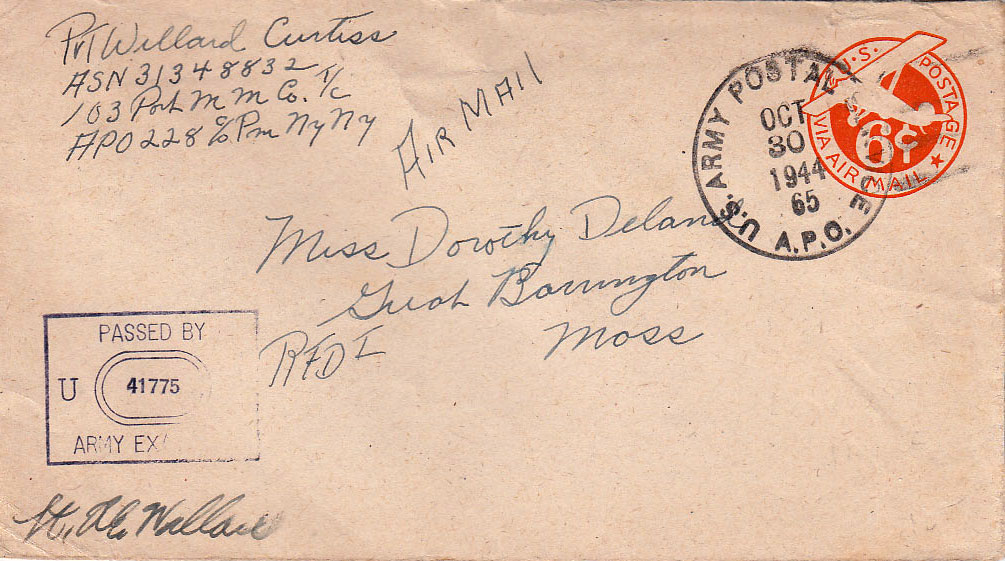 Pvt Willard Curtiss
ASN 31348832
103 Port M M Co. T/c
APO 228 % Pm Ny Ny
AIR MAIL
U.S. ARMY POSTAL
A.P.O.
OCT
30
1944
65
U.S. POSTAGE
6¢
VIA AIR MAIL
Miss Dorothy
Great Barrington
Mass
RFD 1
PASSED BY
U 41775
ARMY EX
Lt. Wallace